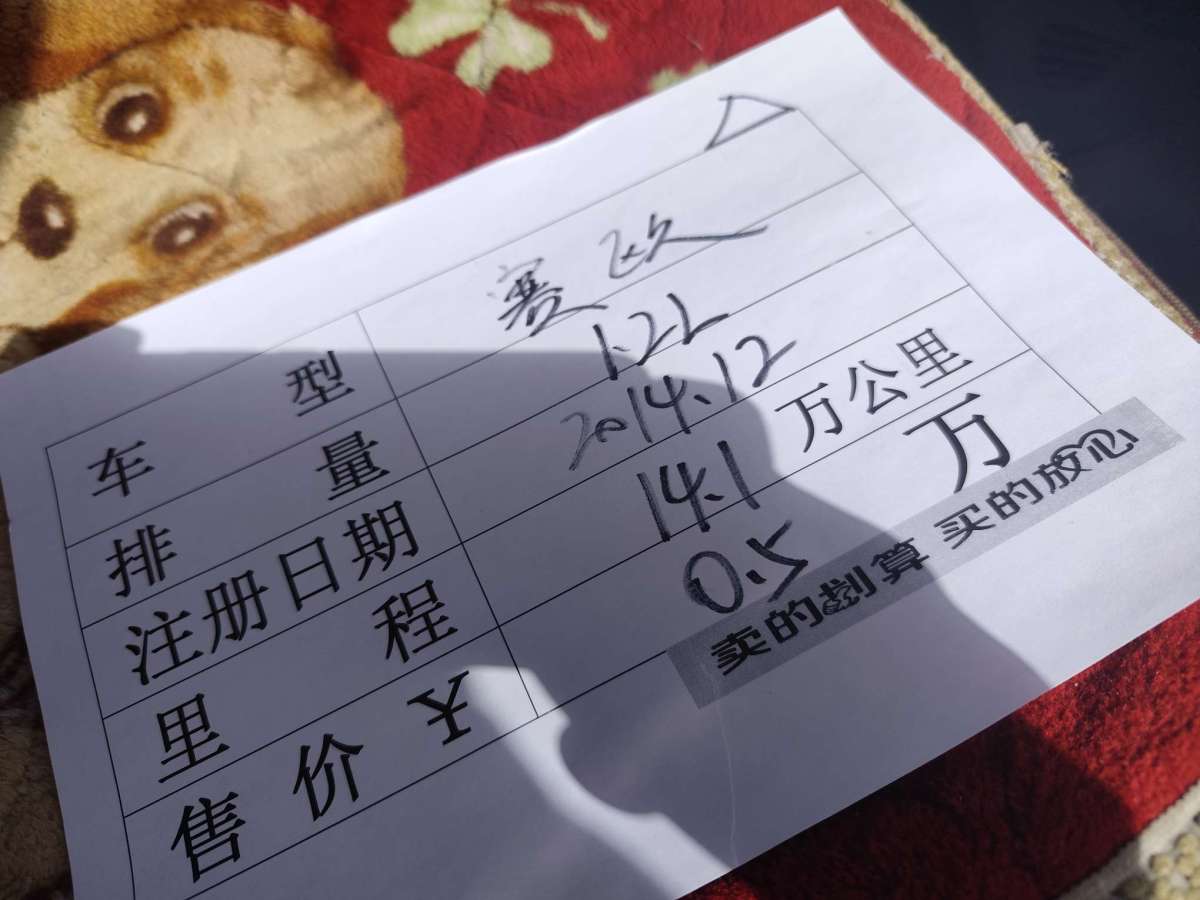 车型 赛欧
排量 1.2L
注册日期 2014.12
里程 14.1万公里
售价¥ 0.5万
卖的划算 买的放心